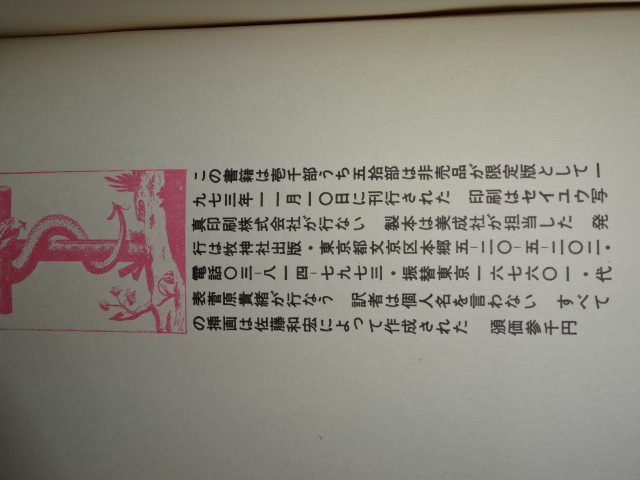 この書籍は壱千部うち五拾部は非売品が限定版として一
九七三年一一月一〇日に刊行された　印刷はセイユウ写
真印刷株式会社が行ない　製本は美成社が担当した　発
行は牧神社出版・東京都文京区本郷五−二〇−五−二〇二・
電話〇三−八一四−七九七三・振替東京一六七六〇一・代
表菅原貴緒が行なう　訳者は個人名を言わない　すべて
の挿画は佐藤和宏によって作成された　頒価参千円